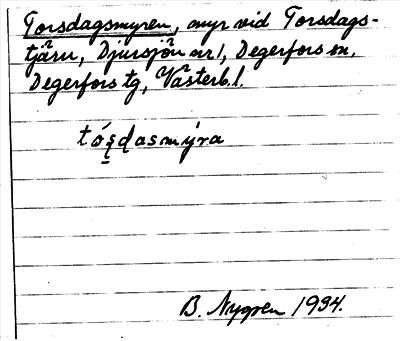 Torsdagsmyren, myr vid Torsdags-
tjärn, Djursjön nr 1, Degerfors sn,
Degerfors tg, Västerb. l.
tóş̱ḍasmýra
B. Nygren 1934.